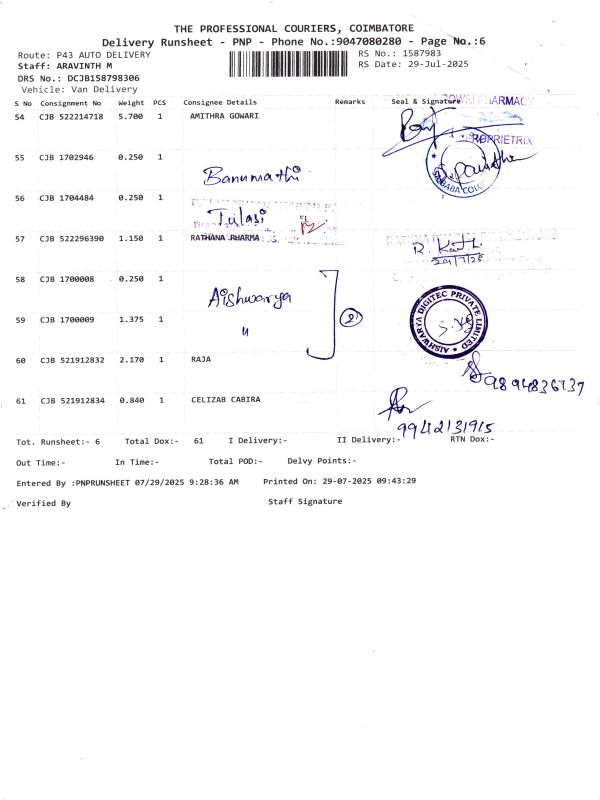 THE PROFESSIONAL COURIERS, COIMBATORE
Delivery Runsheet - PNP - Phone No.:9047080280 - Page No.:6
Route: P43 AUTO DELIVERY RS No.: 1587983
Staff: ARAVINTH M RS Date: 29-Jul-2025
DRS No.: DCJB158798306
Vehicle: Van Delivery
S No Consignment No Weight PCS Consignee Details Remarks Seal & Signature
PHARMACY
54 CJB 522214718 5.700 1 AMITHRA GOWARI
PROPRIETRIX
55 CJB 1702946 0.250 1
Banumathi
56 CJB 1704484 0.250 1
Tulasi
57 CJB 522296390 1.150 1 RATHANA PHARMA
29/7/25
58 CJB 1700008 0.250 1
Aishwarya
59 CJB 1700009 1.375 1
"
2
AISHWARYA DIGITEC PRIVATE LIMITED
60 CJB 521912832 2.170 1 RAJA
9894836737
61 CJB 521912834 0.840 1 CELIZAB CABIRA
9942131915
Tot. Runsheet:- 6 Total Dox:- 61 I Delivery:- II Delivery:- RTN Dox:-
Out Time:- In Time:- Total POD:- Delvy Points:-
Entered By :PNPRUNSHEET 07/29/2025 9:28:36 AM Printed On: 29-07-2025 09:43:29
Verified By Staff Signature